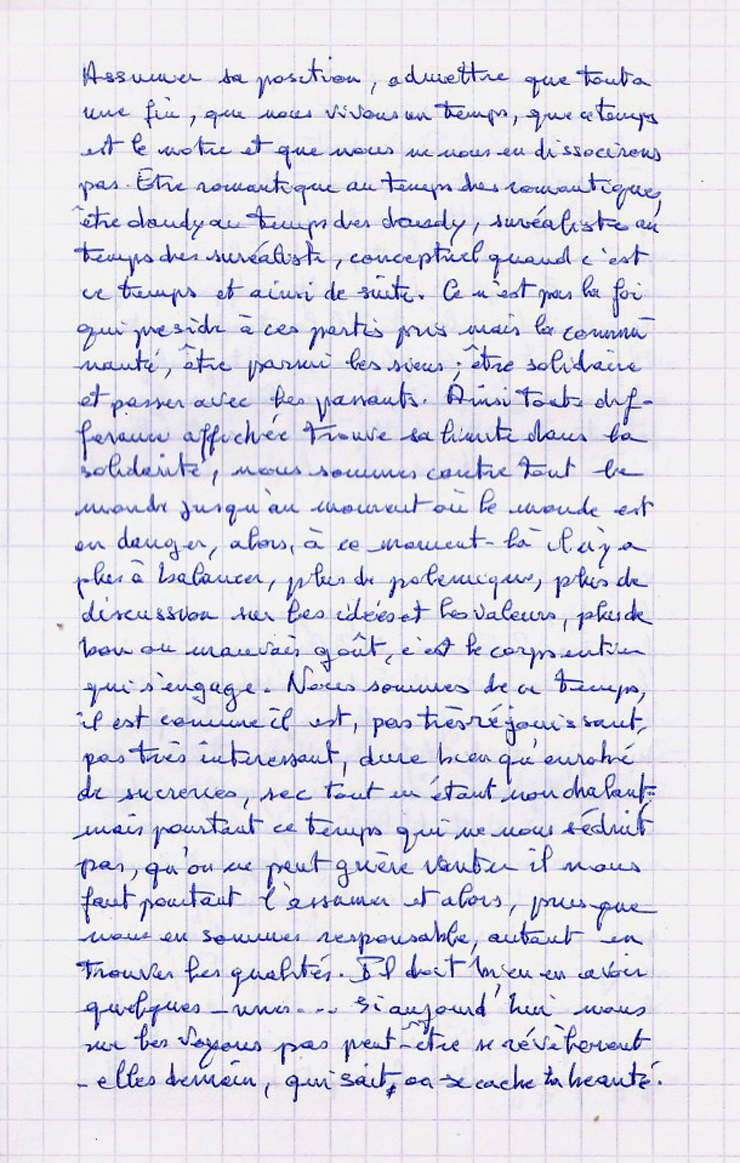 Assumer sa position, admettre que tout a
une fin, que nous vivons un temps, que ce temps
est le notre et que nous ne nous en dissocierons
pas. Etre romantique au temps des romantiques,
être dandy au temps des dandy, suréaliste au
temps des suréaliste, conceptuel quand c'est
ce temps et ainsi de suite. Ce n'est pas la foi
qui preside à ces partis pris mais la commu
nauté, être parmi les siens ; être solidaire
et passer avec les passants. Ainsi toute dif-
ference affichée trouve sa limite dans la
solidarité, nous sommes contre tout le
monde jusqu'au moment où le monde est
en danger, alors, à ce moment-là il n'y a
plus à balancer, plus de polemique, plus de
discussion sur les idées et les valeurs, plus de
bon ou mauvais goût, c'est le corps entier
qui s'engage. Nous sommes de ce temps,
il est comme il est, pas très réjouissant,
pas très interessant, dure bien qu'enrobé
de sucreries, sec tout en étant nonchalant
mais pourtant ce temps qui ne nous séduit
pas, qu'on ne peut guère vanter il nous
faut pourtant l'assumer et alors, puisque
nous en sommes responsable, autant en
trouver les qualités. Il doit bien en avoir
quelques-unes... si aujourd'hui nous
ne les voyons pas peut-être se révèleront
-elles demain, qui sait, où se cache la beauté.